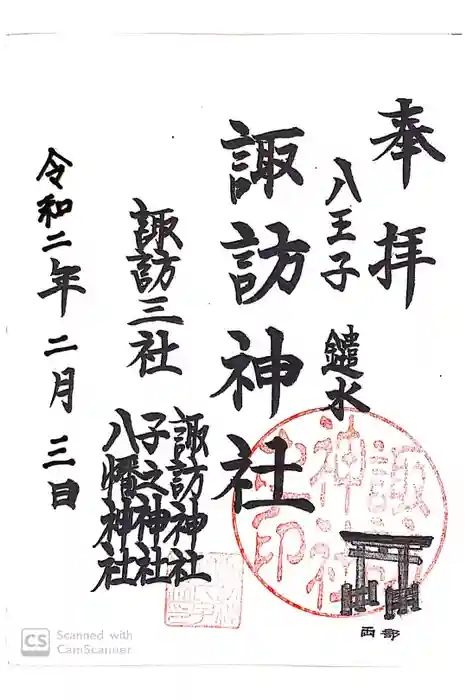 奉拝
八王子 鑓水
諏訪神社
諏訪三社
諏訪神社
子之神社
八幡神社
令和二年二月三日
両部
CS Scanned with
CamScanner